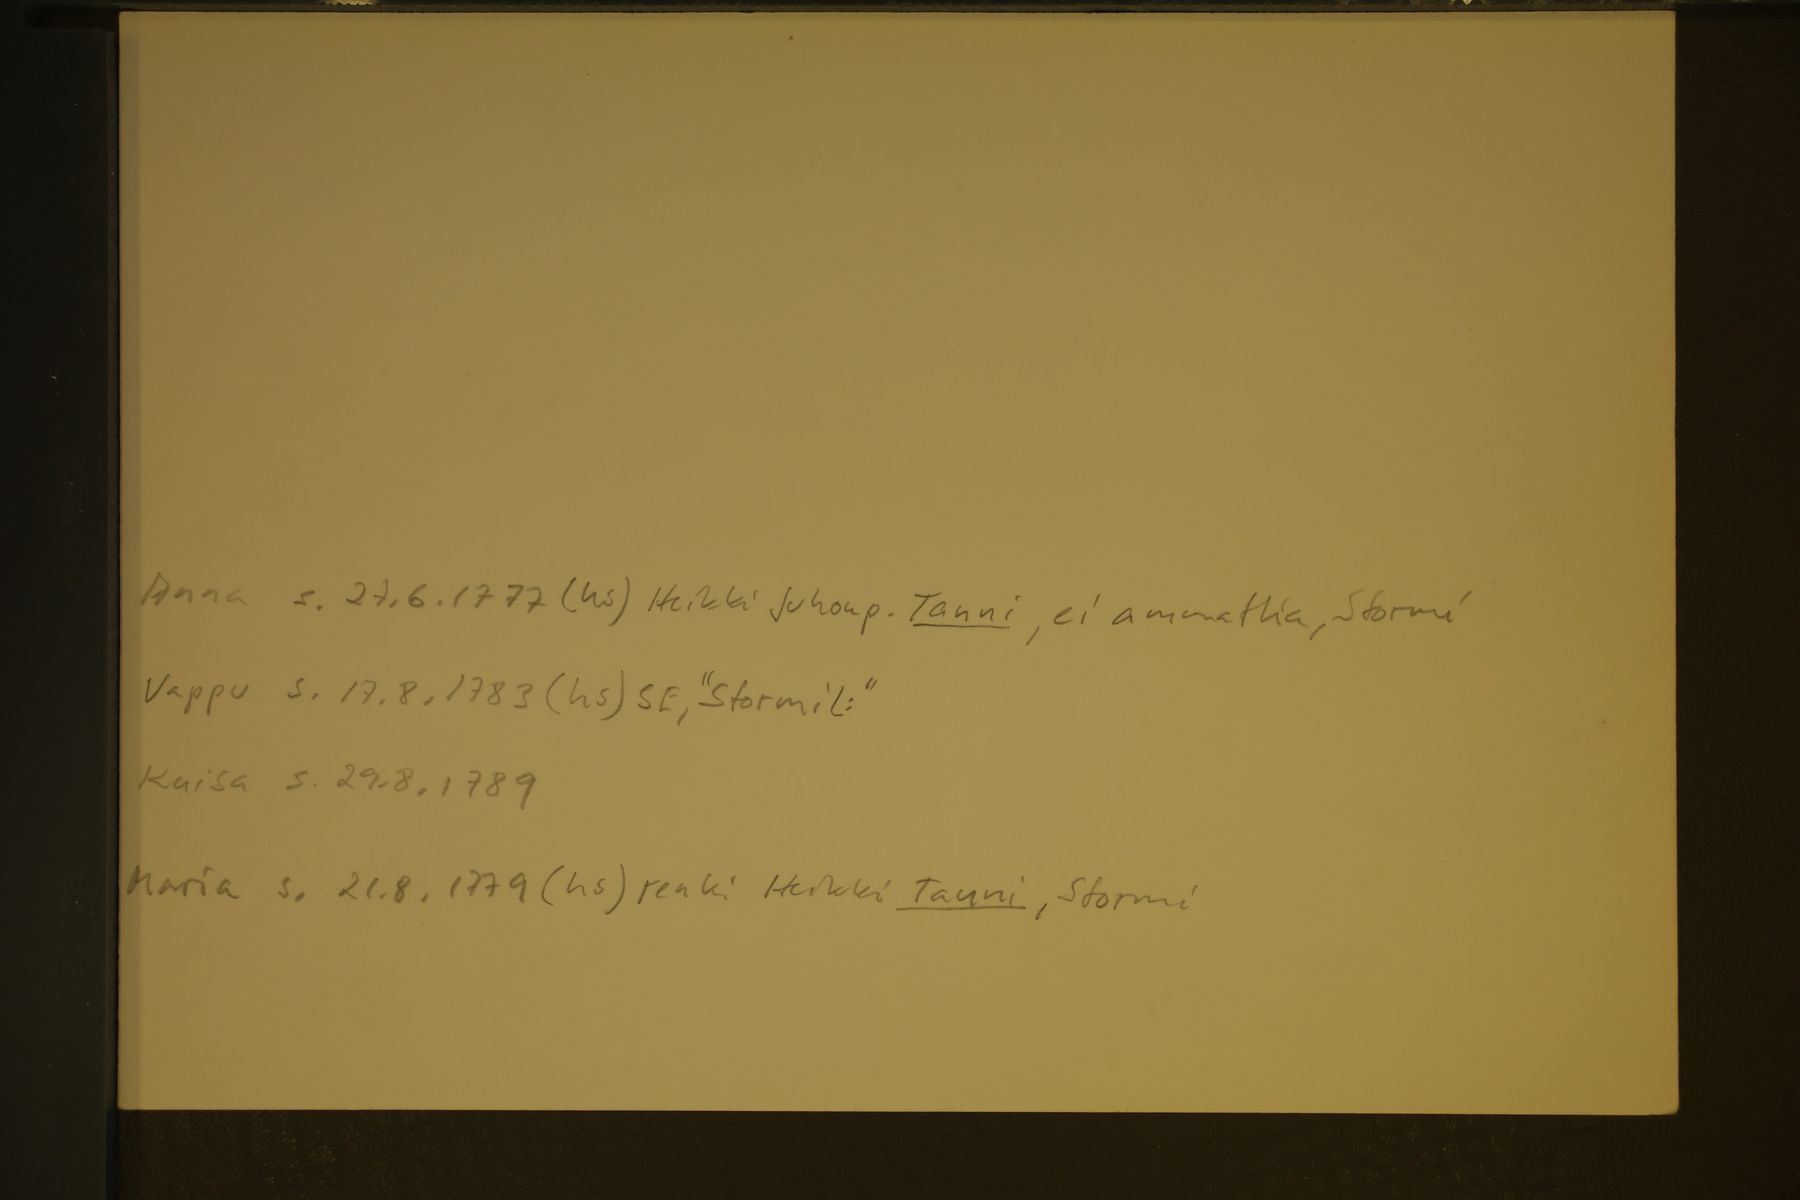 Anna s. 27.6.1777 (hs) Heikki Juhonp. Tanni, ei ammattia, Stormi
Vappu s. 17.8.1783 (hs) SE, "Stormil:"
Kaisa s. 29.8.1789
Maria s. 21.8.1779 (hs) renki Heikki Tanni, Stormi